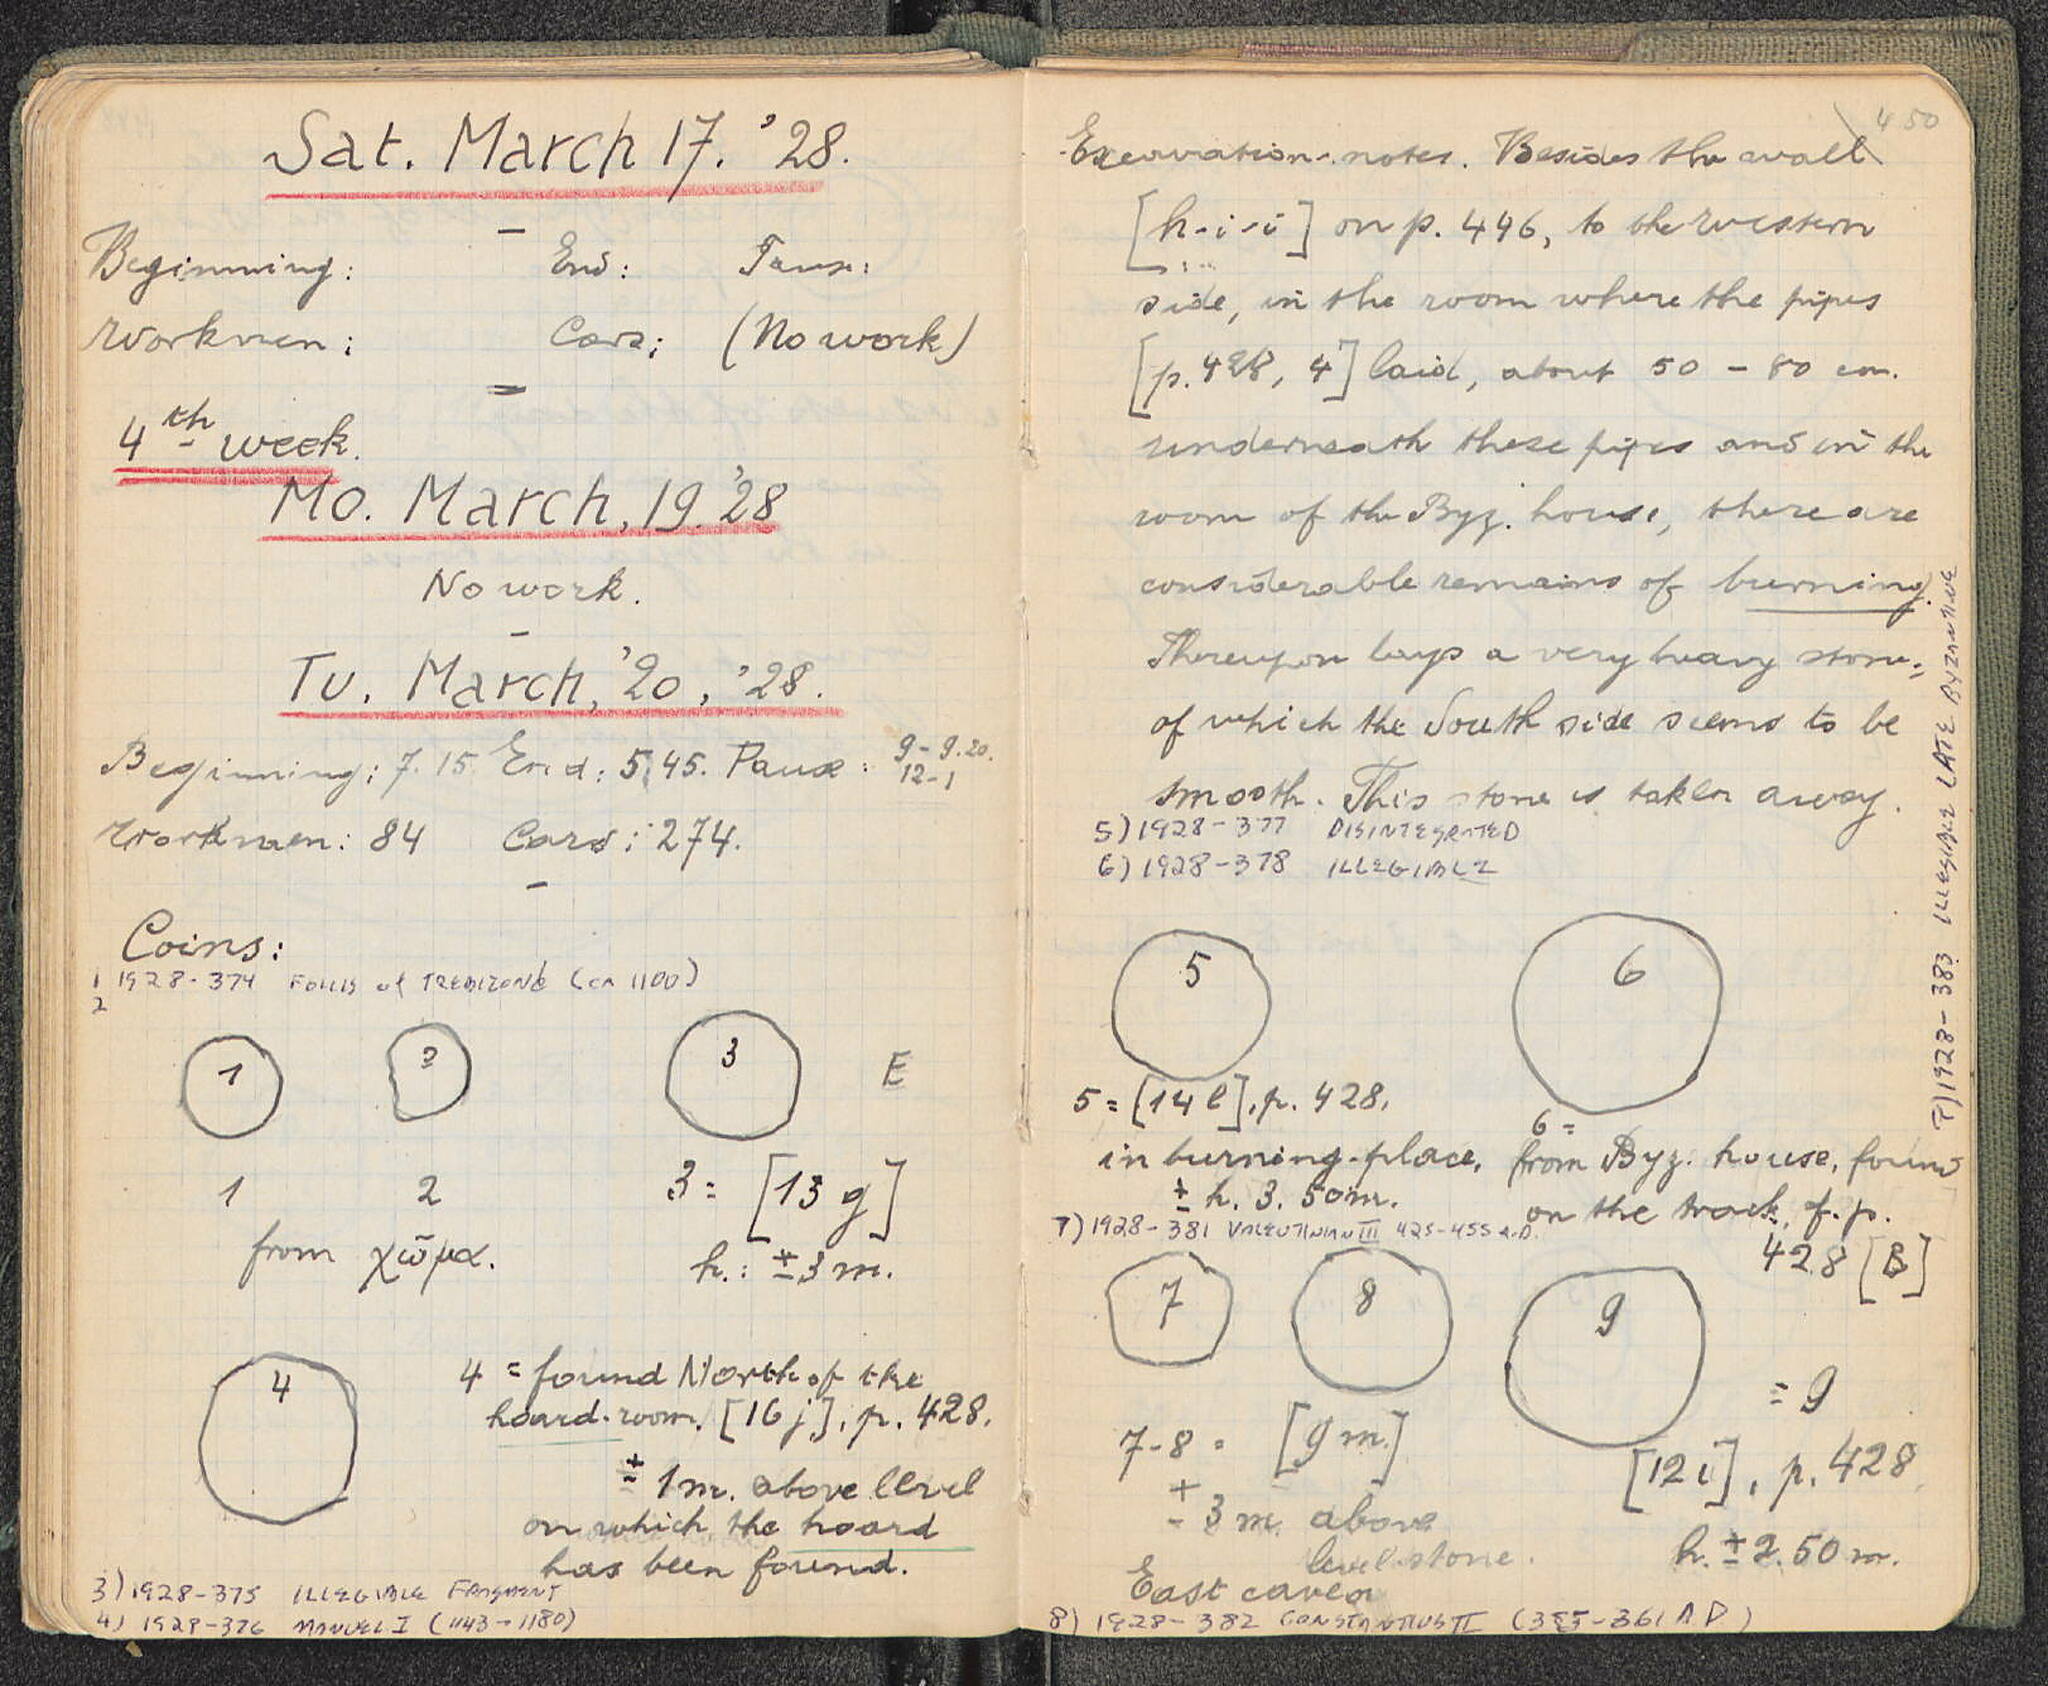 Sat. March 17. '28.
Beginning: End: Paus:
Workmen: Cars: (No work)
4th week.
Mo. March, 19. '28
No work.
Tu. March, '20, '28.
Beginning: 7.15 End: 5,45. Pause: 9-9.20.
12-1
Workmen: 84 Cars: 274.
Coins:
1 1928-374 FOLLIS of TREBIZOND (ca 1100)
2
1 2 3 E
1 2 3 = [13 g]
from χῶμα. h.: ± 3 m.
4
4 = found North of the
hoard-room. [16 j], p. 428.
± 1 m. above level
on which the hoard
has been found.
3) 1928-375 ILLEGIBLE FRAGMENT
4) 1928-376 MANUEL I (1143-1180)
450
Excavation-notes. Besides the wall
[h-i-i] on p. 446, to the western
side, in the room where the pipes
[p. 428, 4] laid, about 50 - 80 cm.
underneath these pipes and in the
room of the Byz. house, there are
considerable remains of burning.
Thereupon lays a very heavy stone,
of which the South side seems to be
smooth. This stone is taken away.
5) 1928-377 DISINTEGRATED
6) 1928-378 ILLEGIBLE
5 6
5 = [14 l], p. 428.
in burning-place,
± h. 3.50 m.
6 =
from Byz. house, found
on the track, cf. p.
428 [B]
7) 1928-381 VALENTINIAN III 425-455 A.D.
7 8 9
= 9
7-8 = [9 m.]
± 3 m. above
level stone.
East cavea
[12 i], p. 428
h. ± 2.50 m.
8) 1928-382 CONSTANTIUS II (335-361 A.D)
9) 1928-383 ILLEGIBLE LATE BYZANTINE